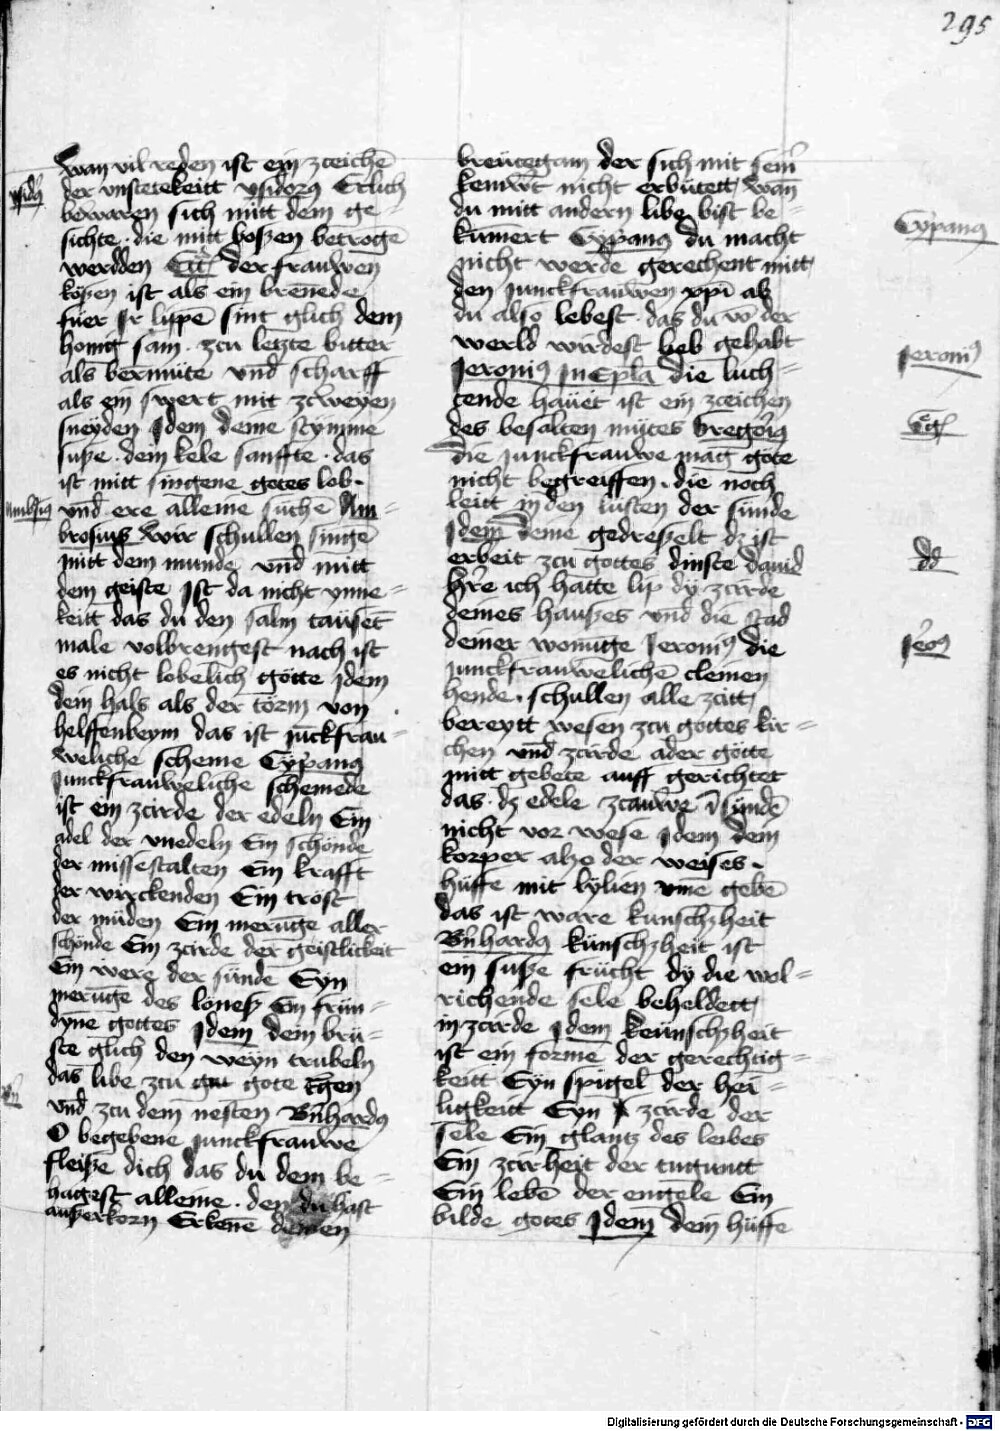 295
wan vil reden ist ein zceichē
der vnstetekeitt ysidorꝰ Erlich
bewaren sich mitt dem ge=
sichte · die mitt boßen betrogē
werdden der frauwen
kößen ist als ein brēnede
fuer Ir lippē sint glich dem
honig sam · zcu letzte bitter
als bermüte vnd scharff
als ein swert mit zcweyen
sneyden Idem deine stymme
suße · dein kele sanffte · das
ist mitt singene gotes lob ·
vnd ere alleine suchē Am=
brosius Wir schullen singē
mitt dem munde vnd mitt
dem geiste Ist da nicht ynne=
keitt das du den salm tausēt
male volbrengest nach ist
es nicht lobelich götte Idem
dein hals als der törm von
helffenbeym das ist jūckfrau=
weliche scheme Cyp̄anꝰ
Junckfrauweliche schemede
ist ein zcirde der edeln Ein
adel der vnedeln Ein schönde
der missestalten Ein krafft
der wirckenden Ein tröst
der müden Ein merūge aller
schönde Ein zcirde der geistlickeit
Ein were der sünde Eyn
merūge des löneß Ein frün=
dyne gottes Idem dein brü=
ste glich den weyn trubeln
das libe zcu gote kēgen
vnd zcu dem nesten Bn̄hardꝰ
O begebene junckfrauwe
fleiße dich das du dem be=
hagest alleine · den du hast
außerkorn Erkēne deinen
breütegam der sich mit sein̄
kemw̄t nicht erbütett wan̄
du mitt andern libe bist be=
kūmert Cyp̄anꝰ du macht
nicht werde gerechent mitt
den junckfrauwen xp̄i ab
du also lebest · das du vō der
werld wirdest lieb gehabt
Jeronīꝰ In Ep̄la die luch=
tende haüet ist ein zceichen
des besalten mütes Gregōriꝰ
die junckfrauwe mag gote
nicht begreiffen · die noch
leitt in den lüsten der sünde
Idem deine gedreßelt dz ist
erbeit zcu gottes dinste dauid
hr̄e ich hatte lip dy zcirde
deines haußes vnd die stad
deiner wonūge Jeronīꝰ die
junckfrauwelichē cleinen
hende · schullen alle zcitt
bereytt wesen zcu gottes kir=
chen vnd zcirde ader götte
mitt gebete auff gerichtet
das · dz edele zcauwe ī sündē
nicht vor wese Idem dem
korper alzo der weises ·
hüffe mit lylien vm̄e gebē
das ist ware kunschheit
Bn̄hardꝰ künschheit ist
ein suße frücht dy die wol=
richende sele beheldett
in zcirde Idem keünschheit
ist ein forme der gerechtig=
keitt Eyn spigel der hei=
ligkeitt Eyn zcirde der
sele Ein glantz des leibes
Ein zcirheit der tuguntt
Ein lebē der engele Ein
bilde gotes Idem dein hüffe
Cyp̄anꝰ
Jeronīꝰ
dd
Jeōꝰ
Digitalisierung gefördert durch die Deutsche Forschungsgemeinschaft - DFG